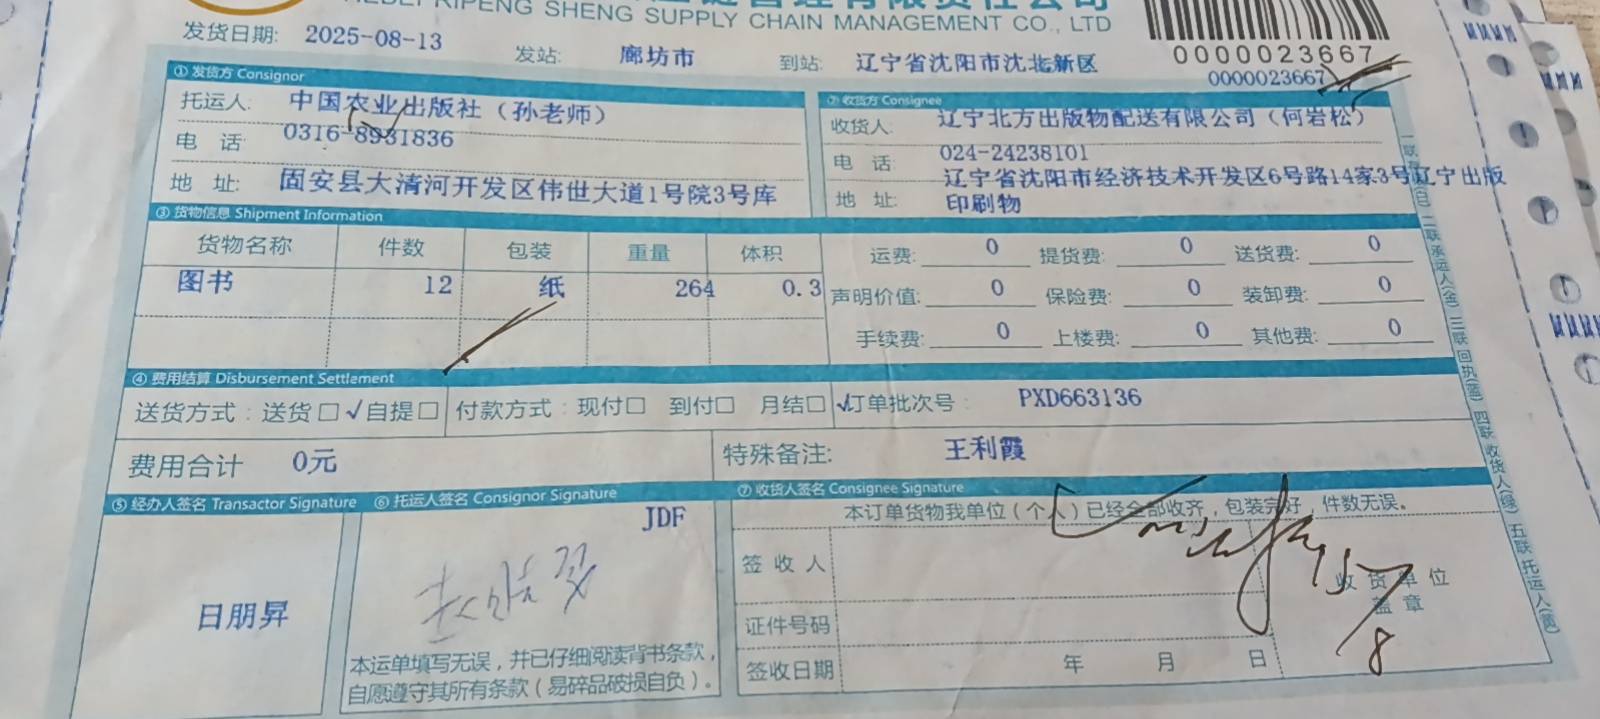 HEBEI RIPENG SHENG SUPPLY CHAIN MANAGEMENT CO., LTD
0000023667
0000023667
发货日期: 2025-08-13 发站: 廊坊市 到站: 辽宁省沈阳市沈北新区
① 发货方 Consignor
托运人: 中国农业出版社（孙老师）
电 话 0316-8931836
地 址: 固安县大清河开发区伟世大道1号院3号库
② 收货方 Consignee
收货人: 辽宁北方出版物配送有限公司（何岩松）
电 话: 024-24238101
地 址: 辽宁省沈阳市经济技术开发区6号路14家3号辽宁出版
印刷物
③ 货物信息 Shipment Information
货物名称 件数 包装 重量 体积
图书 12 纸 264 0.3
运费: 0 提货费: 0 送货费: 0
声明价值: 0 保险费: 0 装卸费: 0
手续费: 0 上楼费: 0 其他费: 0
④ 费用结算 Disbursement Settlement
送货方式: 送货□ √自提□ 付款方式: 现付□ 到付□ 月结□ √订单批次号: PXD663136
费用合计 0元 特殊备注: 王利霞
⑤ 经办人签名 Transactor Signature
日朋昇
⑥ 托运人签名 Consignor Signature
JDF
本运单填写无误，并已仔细阅读背书条款，
自愿遵守其所有条款（易碎品破损自负）。
⑦ 收货人签名 Consignee Signature
本订单货物我单位（个人）已经全部收齐，包装完好，件数无误。
签 收 人
证件号码
签收日期 年 月 日
收 货 单 位
盖 章
15/8
二联承运人(金) 三联回执(蓝) 四联收货人(绿) 五联托运人(黄)